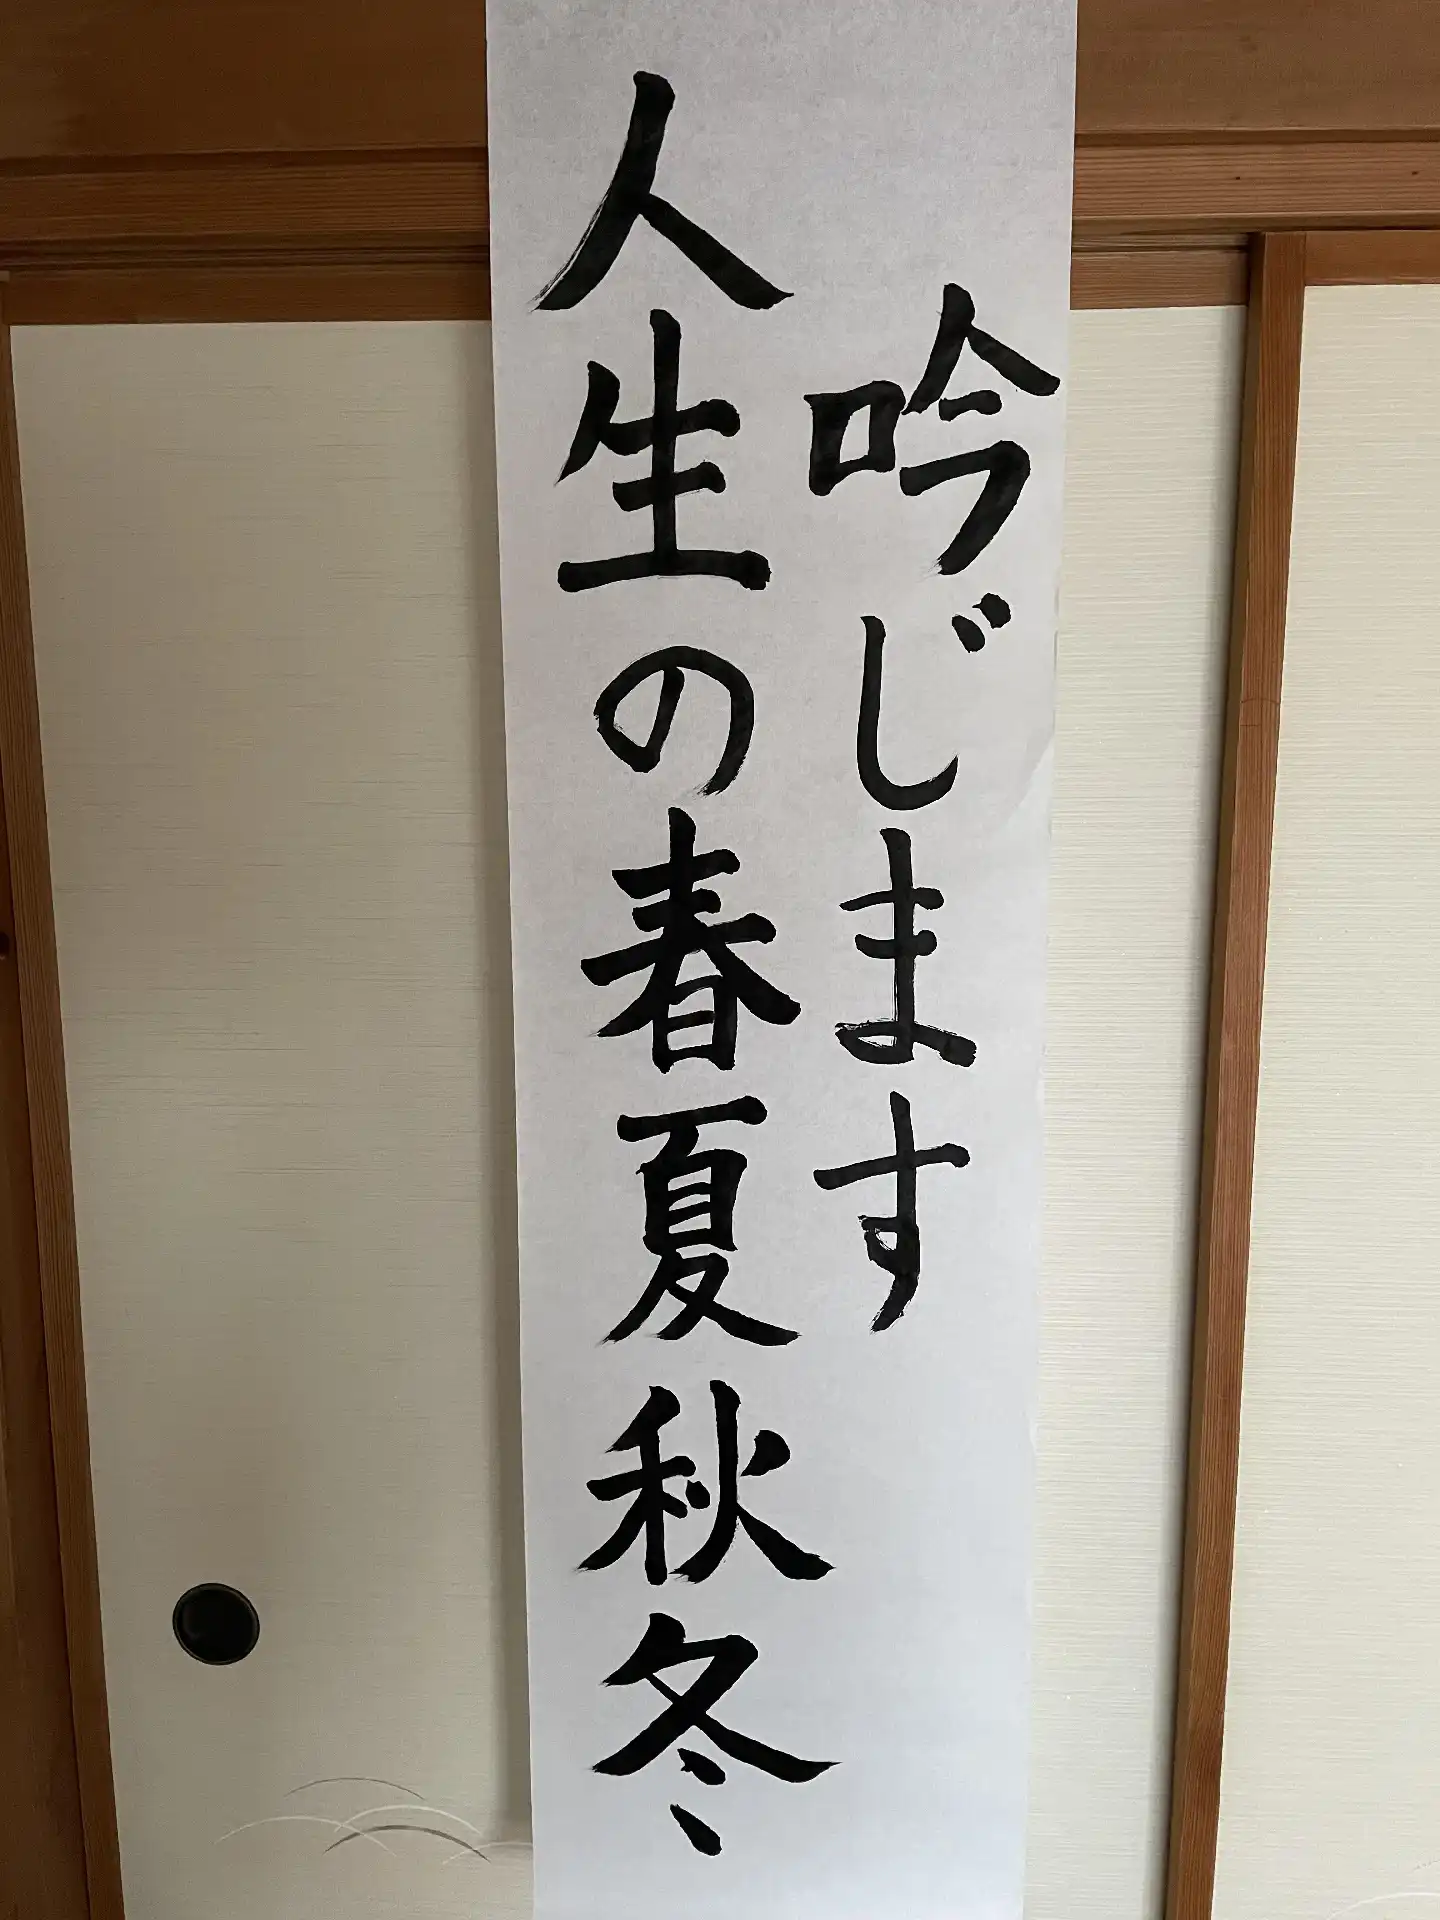 吟じます
人生の春夏秋冬